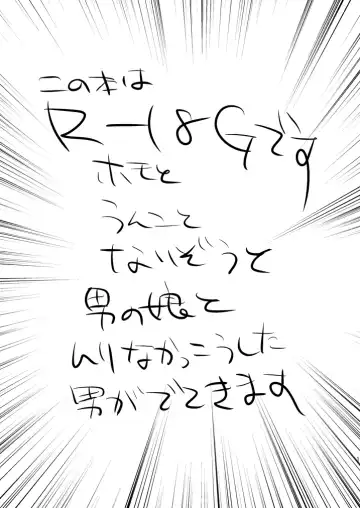 この本は
R-18Gです
ホモと
うんこと
ないぞうと
男の娘と
ムリなかっこうした
男がでてきます